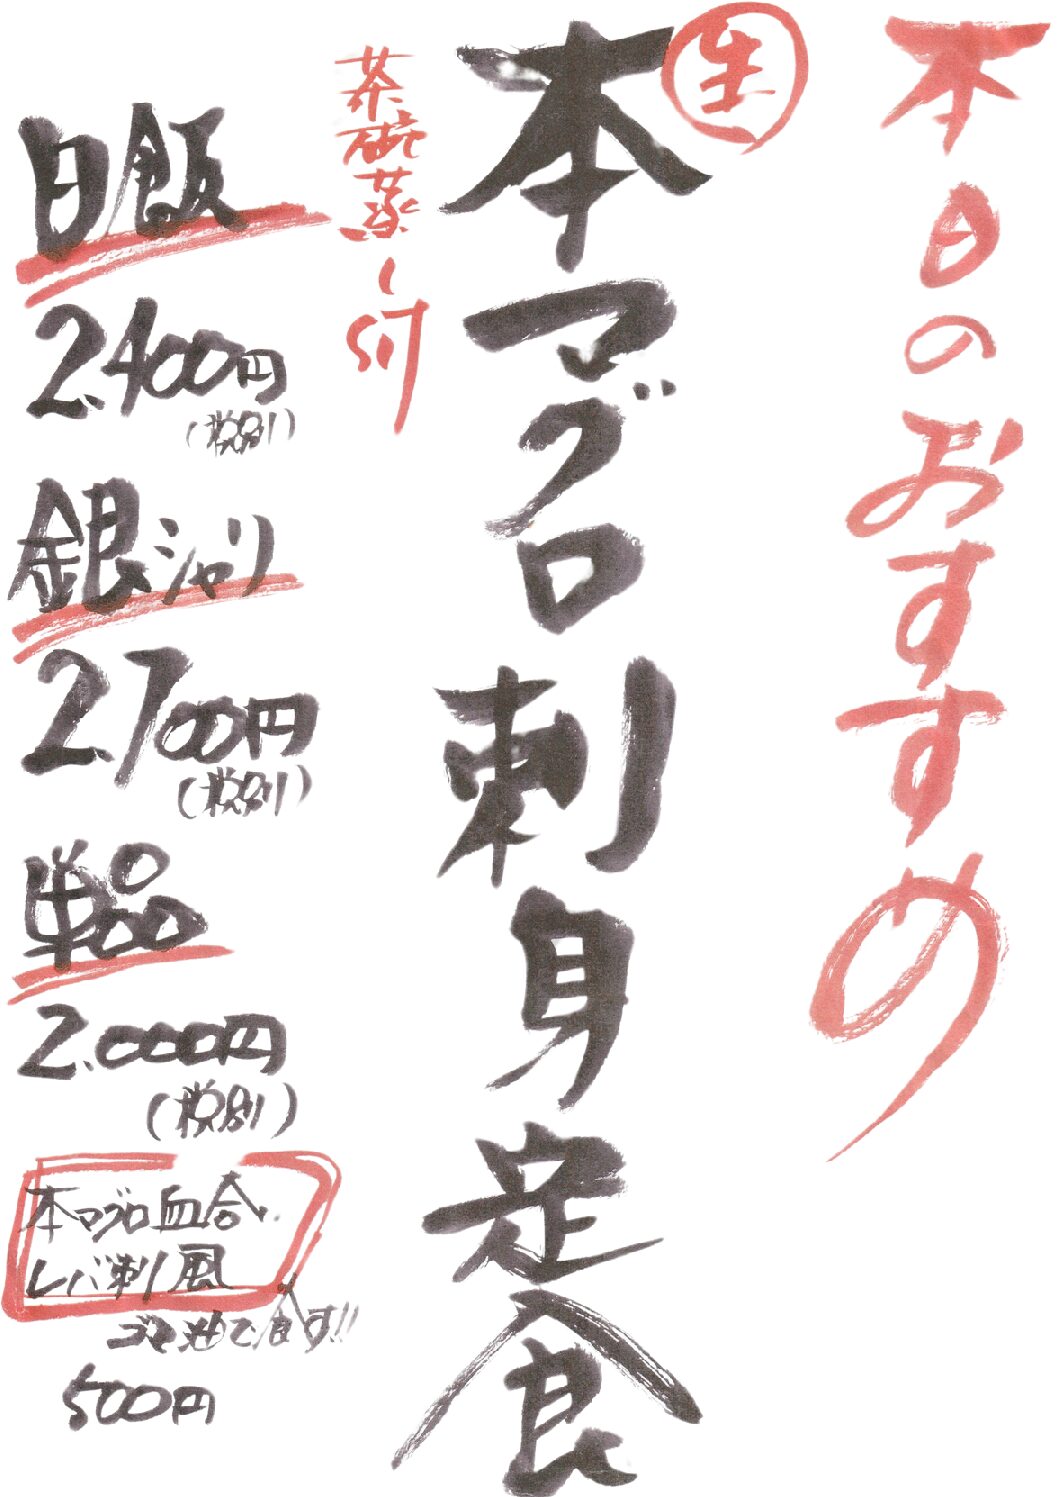 本日のおすすめ
生
本マグロ刺身定食
茶碗蒸し付
白飯
2,400円
(税別)
銀シャリ
2,700円
(税別)
単品
2,000円
(税別)
本マグロ血合
レバ刺風
ゴマ油で食す!!
500円